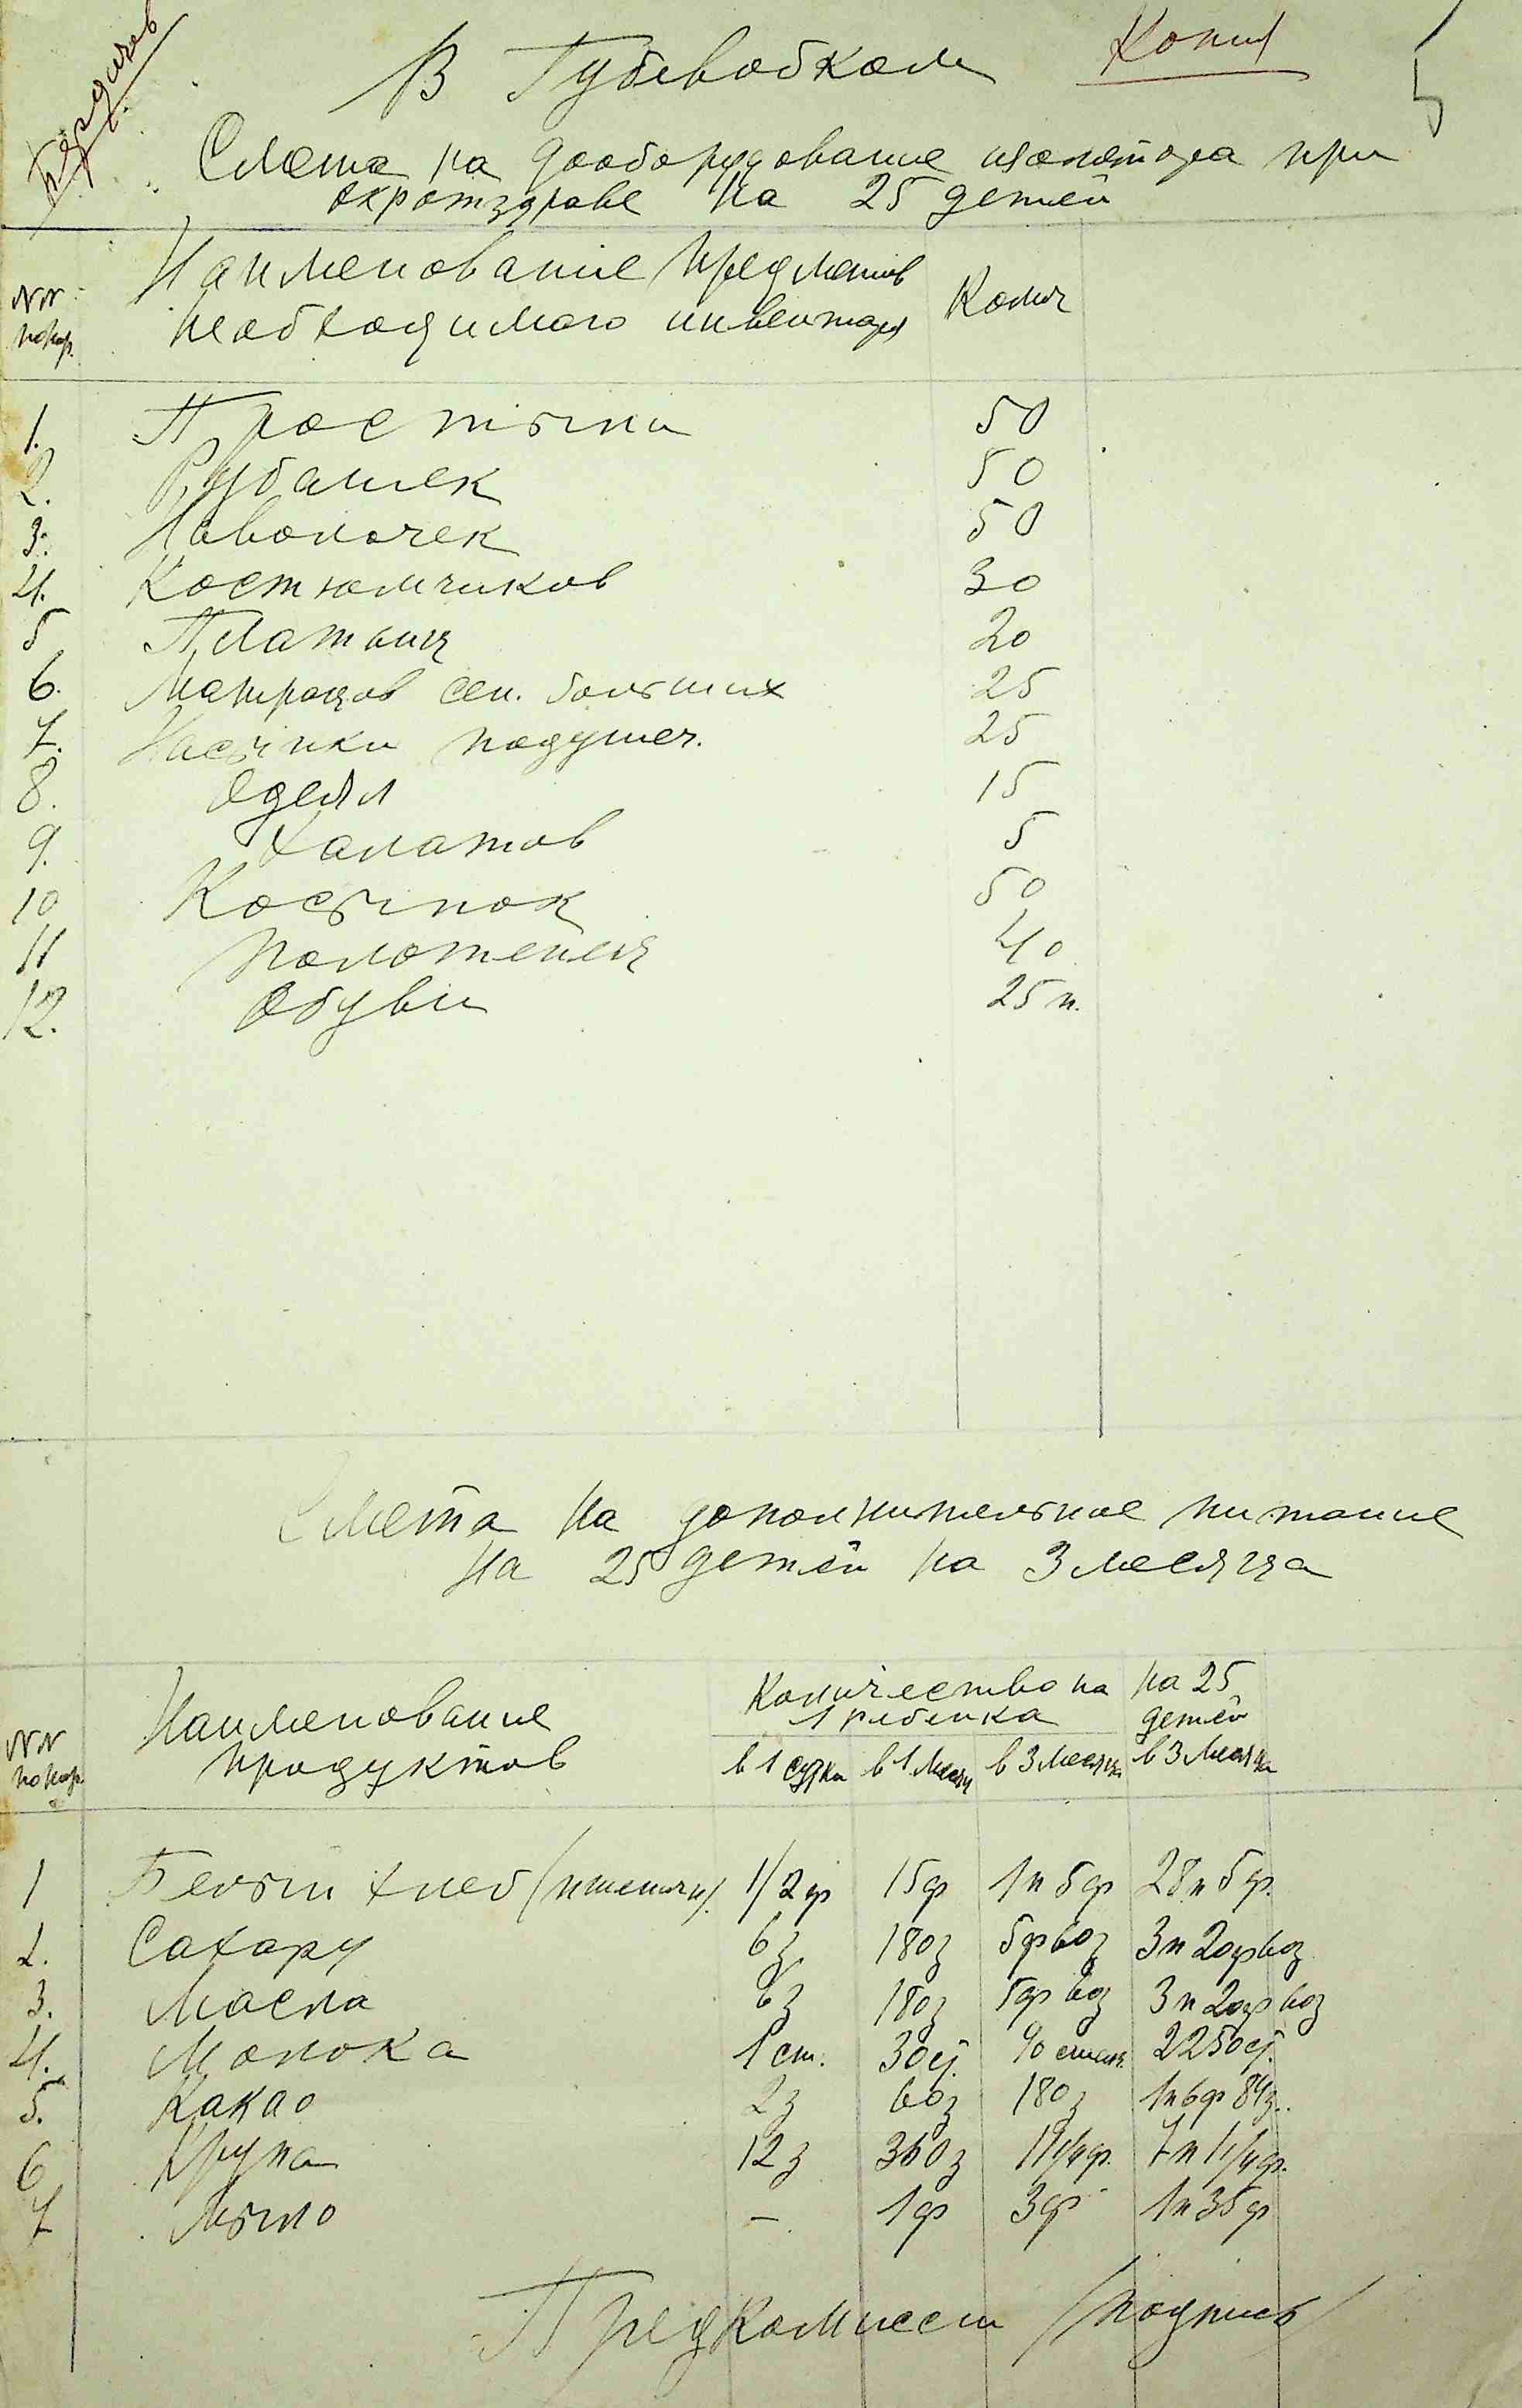 Бердичев
Копия
5
В Губевобком
Смета на дооборудование изолятора при
окротздраве на 25 детей
NN попор.
Наименование предметов
необходимого инвентаря
Колич
1. Простыни 50
2. Рубашек 50
3. Наволочек 50
4. Костюмчиков 30
5 Платьиц 20
6. Матрацов сен. больших 25
7. Насыпки подушеч. 25
8. Одеял 15
9. Халатов 5
10 Косынок 50
11 Полотенец 40
12. Обуви 25 п.
Смета на дополнительное питание
на 25 детей на 3 месяца
NN попор.
Наименование
продуктов
Количество на
1 ребенка
на 25
детей
в 1 сутки в 1 месяц в 3 месяца в 3 месяца
1 Белый хлеб (пшеничн). 1/2 ф 15ф 1п 5ф 28п 5ф.
2. Сахару 6з. 180з 5ф60з 3п 20ф60з
3. Масла 6з 180з 5ф 60з 3п 20ф 60з
4. Молока 1 ст. 30ст. 90 стак. 2250ст.
5. Какао 2з 60з 180з 1п6ф 84з.
6 Крупа 12з 360з 11 1/4ф. 7п 1 1/4ф.
7 Мыло – 1ф 3ф 1п35ф
Предкомиссии /подпись/